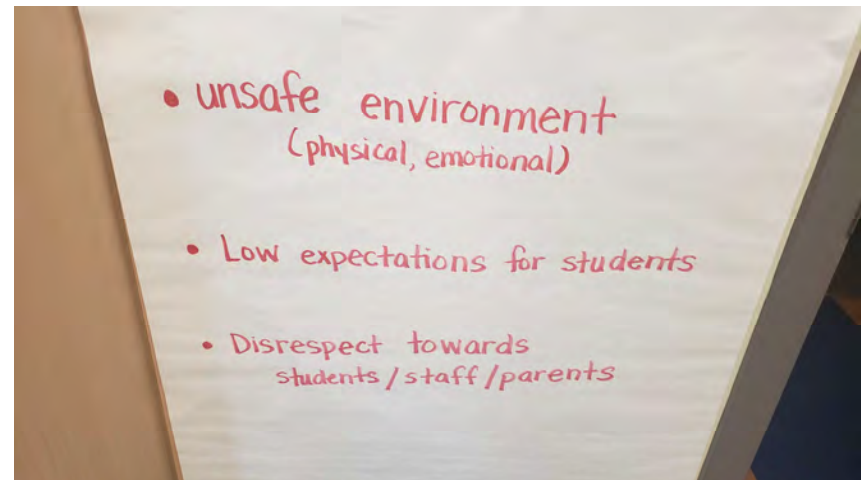 • unsafe environment
(physical, emotional)
• Low expectations for students
• Disrespect towards
students/staff/parents